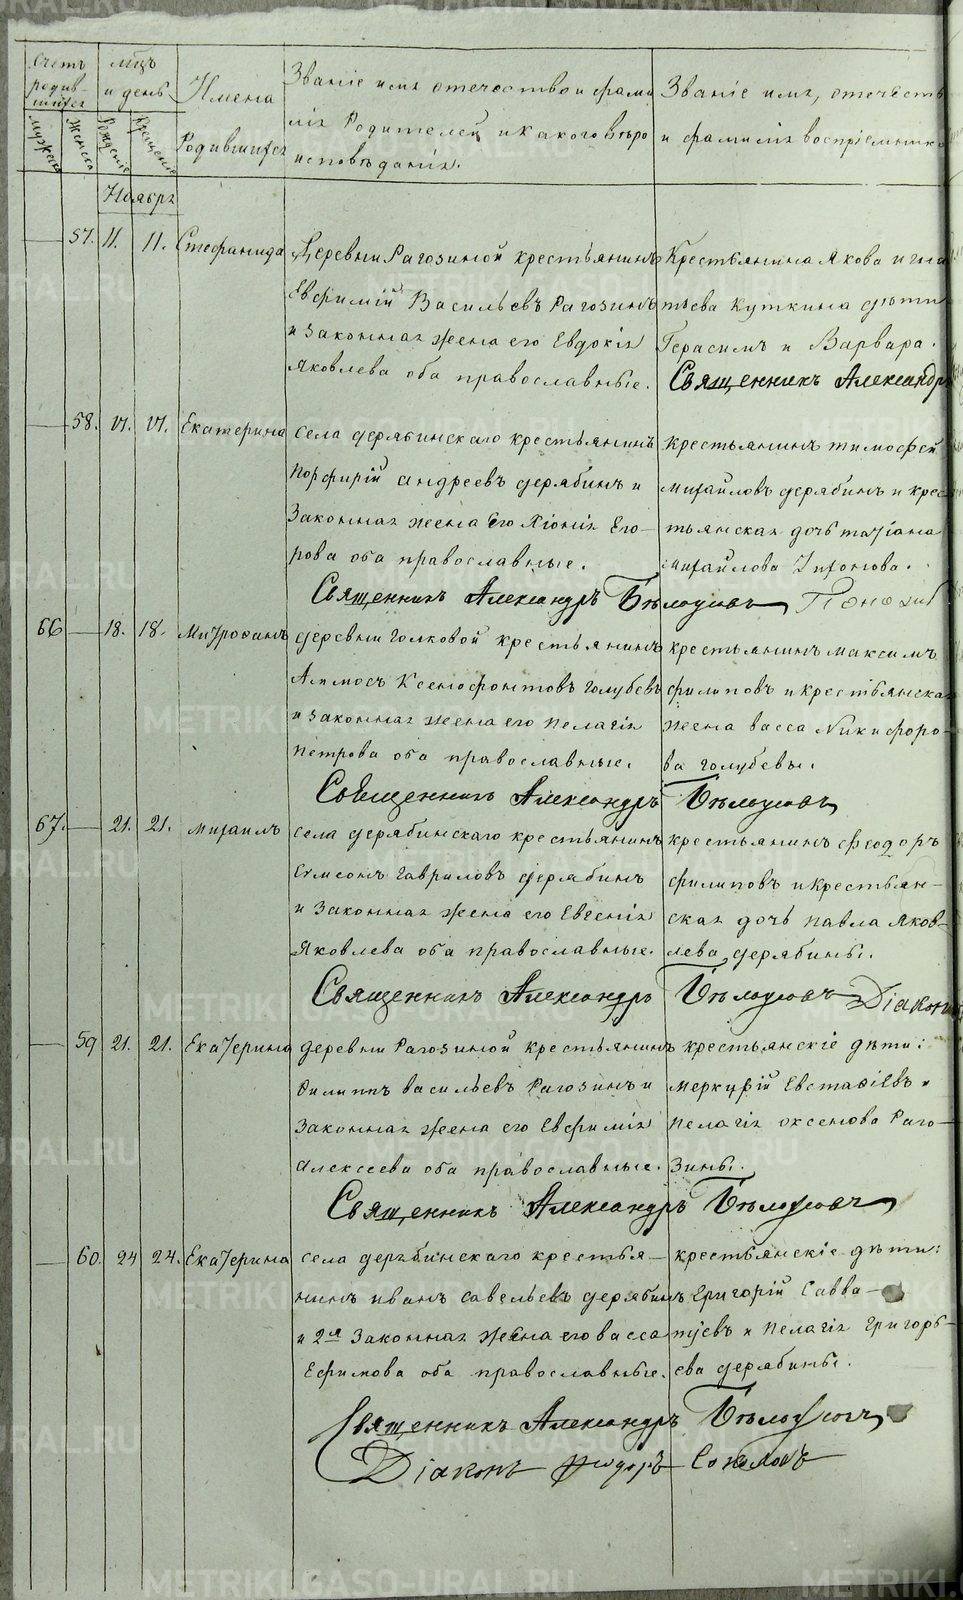 Счетъ родив-шихся
Мѣцъ и день
Имена Родившихся
Званіе имя отечество и фами
лія Родителей и какого вѣро
исповѣданія.
Званіе имя, отечеств
и фамилія воспріемнико
Мужеска
Женска
Рожденія
Крещенія
Ноября
57. 11. 11. Стефанида
Деревни Рагозиной крестьянинъ
Евфимій Васильевъ Рагозинъ
и законная жена его Евдокія
Яковлева оба православные.
Крестьянина Якова Игна
тьева Куткина дѣти
Герасимъ и Варвара.
Священникъ Александръ
58. 17. 17. Екатерина
села дерябинскаго крестьянинъ
Порфирій андреевъ дерябинъ и
Законная жена Его Хіонія Его-
рова оба православные.
крестьянинъ тимофей
михайловъ дерябинъ и крес
тьянская дочь татіана
михайлова
Священникъ Александръ Бѣлоусовъ
66 18. 18. Митрофанъ
деревни голковой крестьянинъ
Аммосъ Ксенофонтовъ голубевъ
и законная жена его пелагія
петрова оба православные.
крестьянинъ максимъ
филиповъ и крестьянская
жена васса Никифоро-
ва голубевы.
Священникъ Александръ Бѣлоусовъ
67. 21. 21. михаилъ
села дерябинскаго крестьянинъ
Самсонъ гавриловъ дерябинъ
и Законная жена его Евгенія
Яковлева оба православные.
крестьянинъ феодоръ
филиповъ и крестьян-
ская дочь павла Яков-
лева дерябины.
Священникъ Александръ Бѣлоусовъ Діаконъ
59 21. 21. Екатерина
деревни Рагозиной крестьянинъ
Филиппъ васильевъ Рагозинъ и
Законная жена его Евфимія
Алексеева оба православные.
крестьянскіе дѣти:
меркурій Евстафіевъ и
Пелагія оксенова Раго-
зины.
Священникъ Александръ Бѣлоусовъ
60. 24 24. Екатерина
села дерябинскаго крестья-
нинъ иванъ савельевъ дерябинъ
и 2я Законная жена его васса
Ефимова оба православные.
крестьянскіе дѣти:
Григорій Савва-
тѣевъ и Пелагія Григорь-
ева дерябины.
Священникъ Александръ Бѣлоусовъ
Діаконъ Феодоръ Соколовъ
METRIKI.GASO-URAL.RU